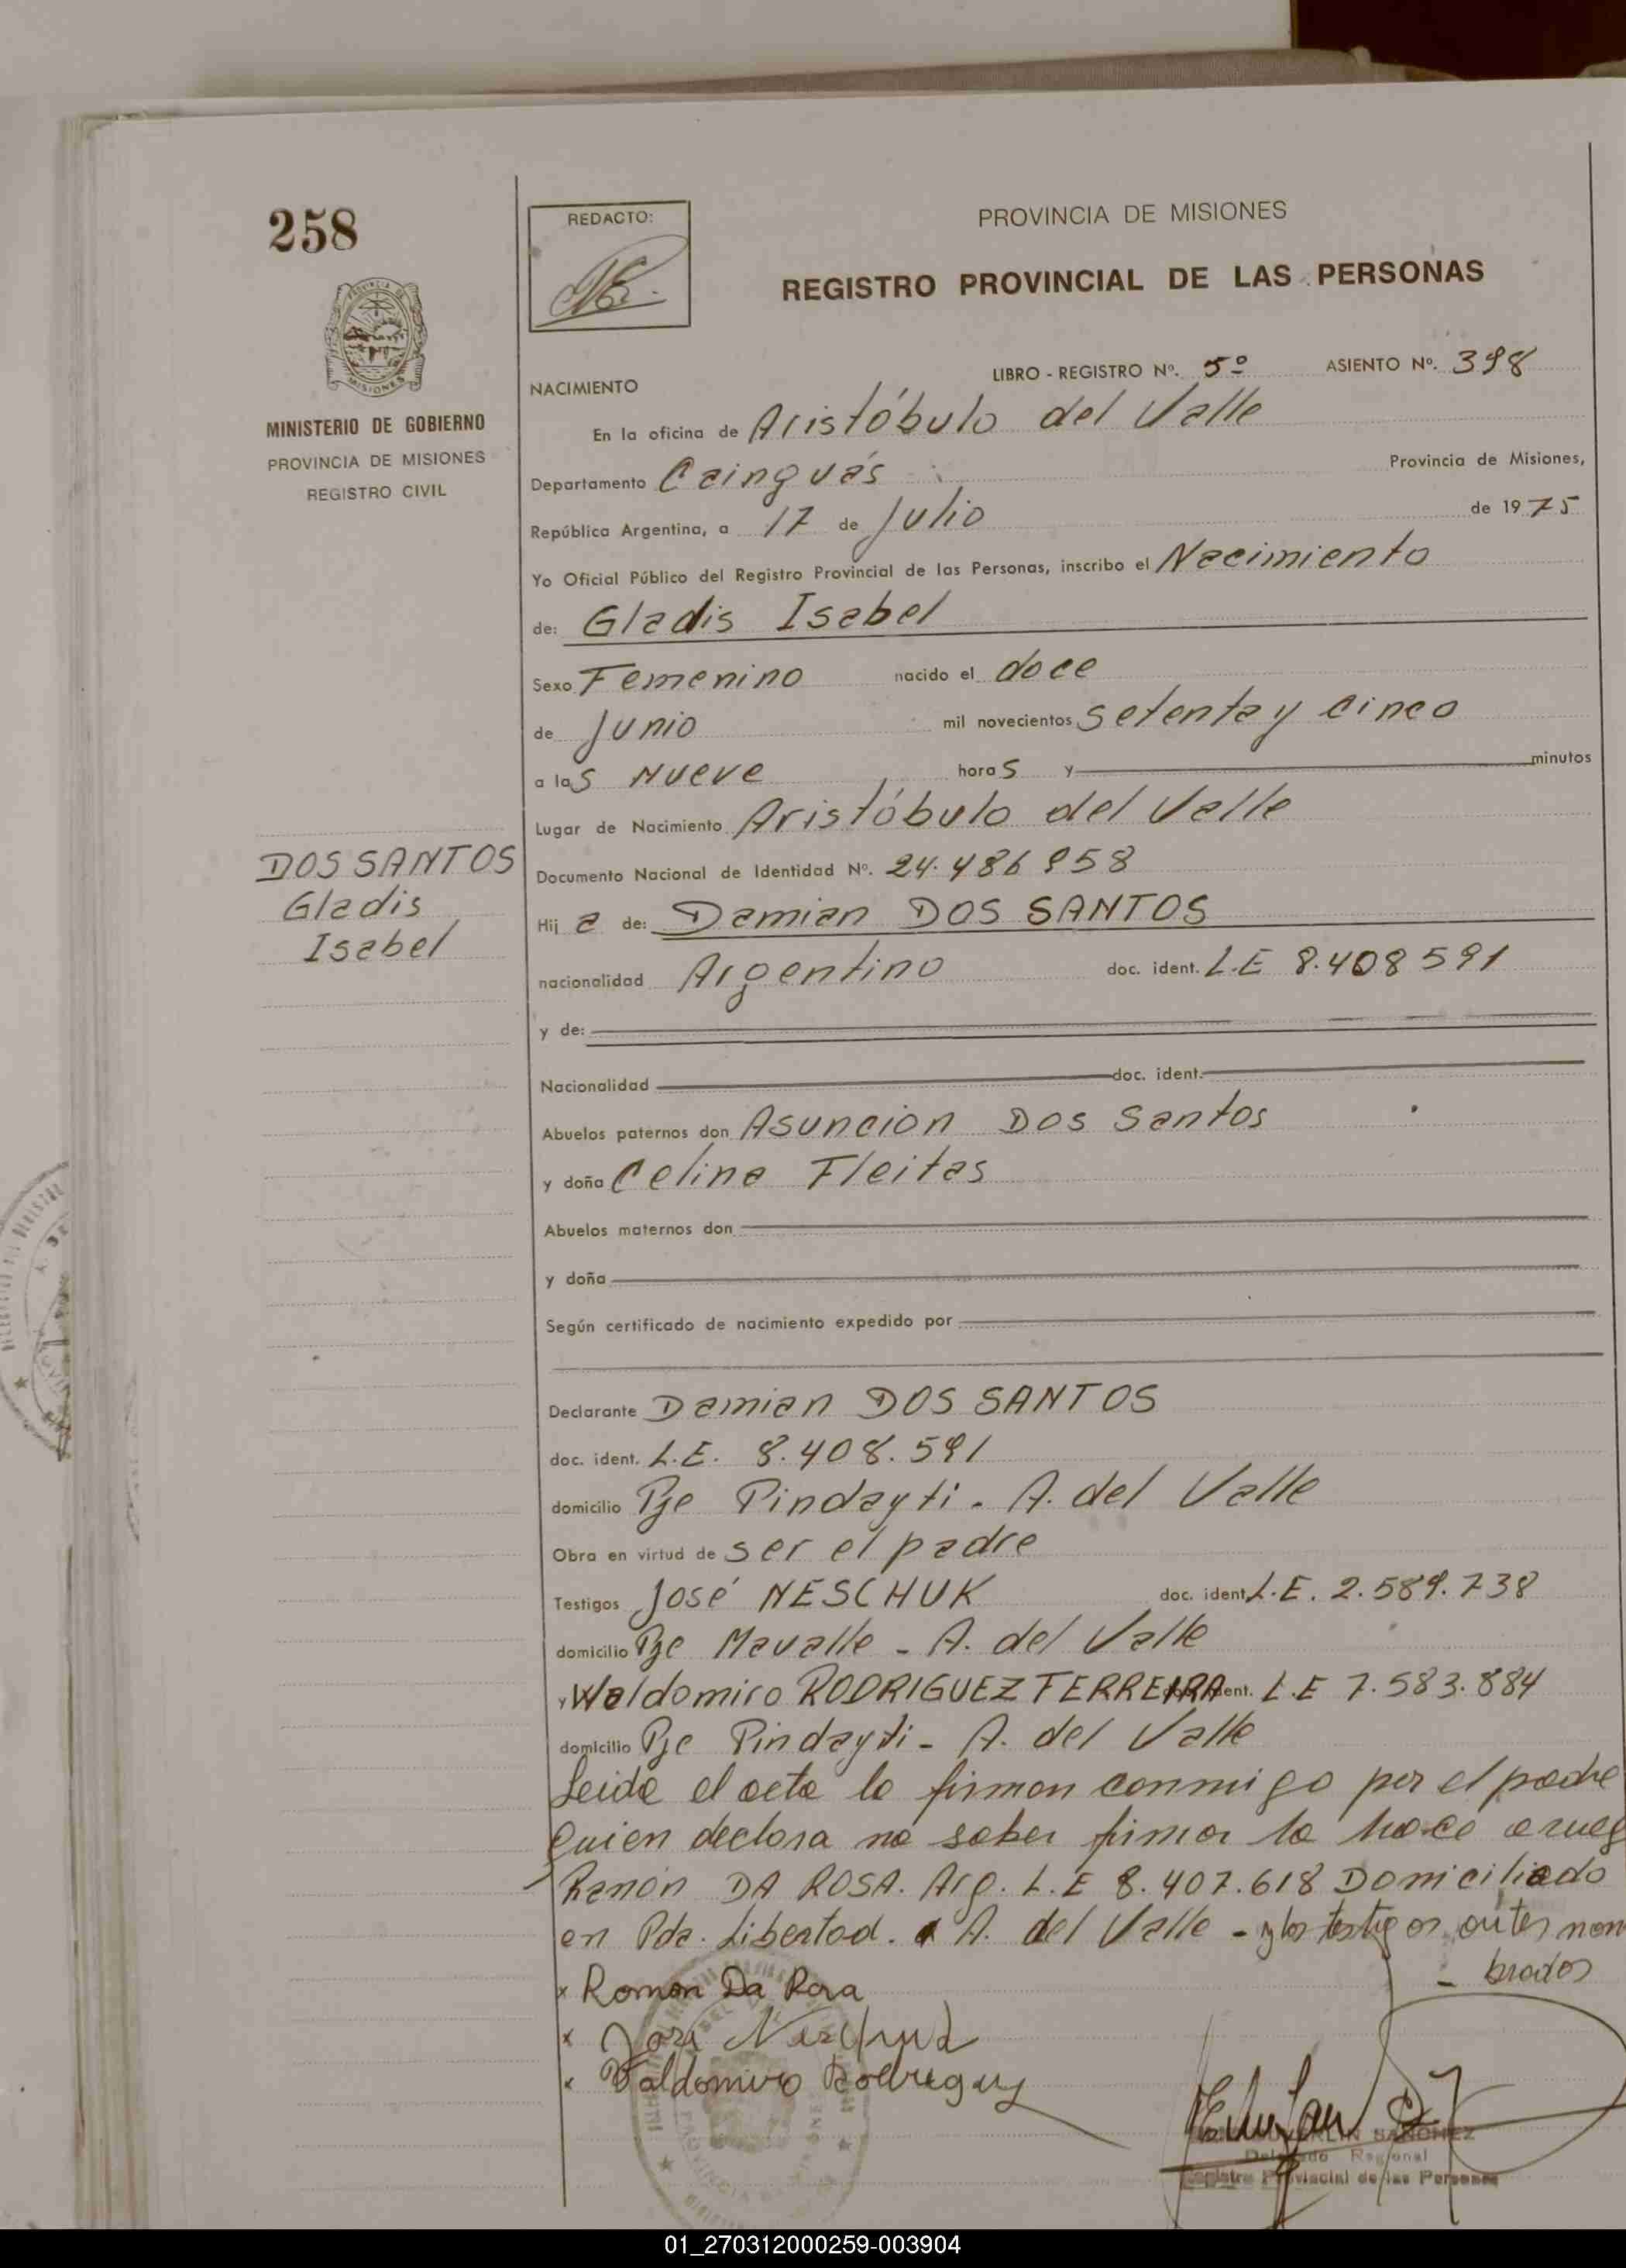 258
REDACTO:
PROVINCIA DE MISIONES
REGISTRO PROVINCIAL DE LAS PERSONAS
MISIONES
MINISTERIO DE GOBIERNO
PROVINCIA DE MISIONES
REGISTRO CIVIL
LIBRO - REGISTRO Nº. 5º ASIENTO Nº. 398
NACIMIENTO
En la oficina de Aristóbulo del Valle
Departamento Cainguás Provincia de Misiones,
República Argentina, a 17 de Julio de 1975
Yo Oficial Público del Registro Provincial de las Personas, inscribo el Nacimiento
de: Gladis Isabel
Sexo Femenino nacido el doce
de Junio mil novecientos setenta y cinco
a las Nueve horas y minutos
Lugar de Nacimiento Aristóbulo del Valle
DOS SANTOS
Gladis
Isabel
Documento Nacional de Identidad Nº. 24.486 958
Hija de: Damian DOS SANTOS
nacionalidad Argentino doc. ident. L.E 8.408 591
y de:
Nacionalidad doc. ident.
Abuelos paternos don Asuncion Dos Santos
y doña Celina Fleitas
Abuelos maternos don
y doña
Según certificado de nacimiento expedido por
Declarante Damian DOS SANTOS
doc. ident. L.E. 8.408.591
domicilio Pje Pindayti - A. del Valle
Obra en virtud de ser el padre
Testigos José NESCHUK doc. ident. L.E. 2.589.738
domicilio Pje Mavalle - A. del Valle
y Waldomiro RODRIGUEZ FERREIRA ent. L.E 7.583.884
domicilio Pje Pindayti - A. del Valle
Leida el acta la firman conmigo por el padre
quien declara no saber firmar lo hace a rueg
Ramón DA ROSA. Arg. L.E 8.407.618 Domiciliado
en Pda. Libertad. A. del Valle - y los testigos antes nom
- brados
x Ramon Da Rosa
x José Neschuk
x Valdomiro Rodriguez
SANCHEZ
Delegado Regional
Registro Provincial de las Personas
01_270312000259-003904